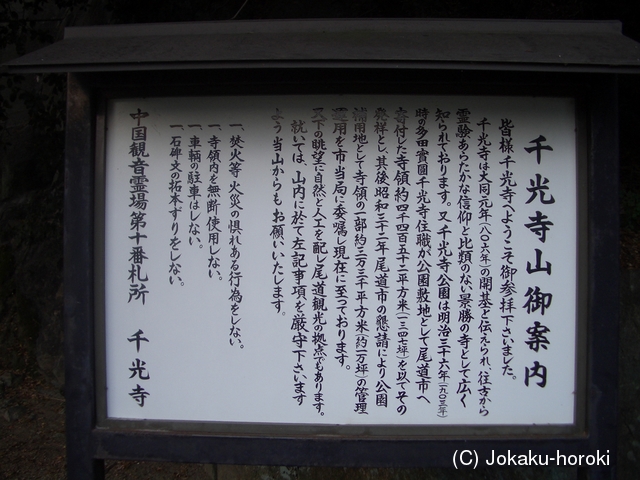 千光寺山御案内
皆様千光寺へようこそ御参拝下さいました。
千光寺は大同元年(八〇六年)の開基と伝えられ、往古から
霊験あらたかな信仰と比類のない景勝の寺として広く
知られております。又千光寺公園は明治三十六年(一九〇三年)
時の多田實圓千光寺住職が公園敷地として尾道市へ
寄付した寺領約四千四百五十二平方米(一三四七坪)を以てその
発祥とし、其後昭和三十二年尾道市の懇請により公園
補用地として寺領の一部約三万三千平方米(約一万坪)の管理
運用を市当局に委嘱し現在に至っております。
天下の眺望に自然と人工を配し尾道観光の拠点でもあります。
就いては、山内に於て左記事項を厳守下さいます
よう当山からもお願いいたします。
一、焚火等火災の惧れある行為をしない。
一、寺領内を無断使用しない。
一、車輌の駐車はしない。
一、石碑文の拓本ずりをしない。
中国観音霊場第十番札所 千光寺
(C) Jokaku-horoki